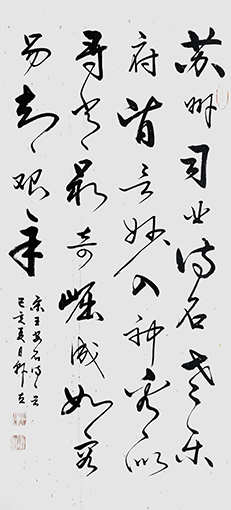 苏州司业诗名老乐
府皆言妙入神看似
寻常最奇崛成如容
易却艰辛
宋王安石诗一首
己亥夏月